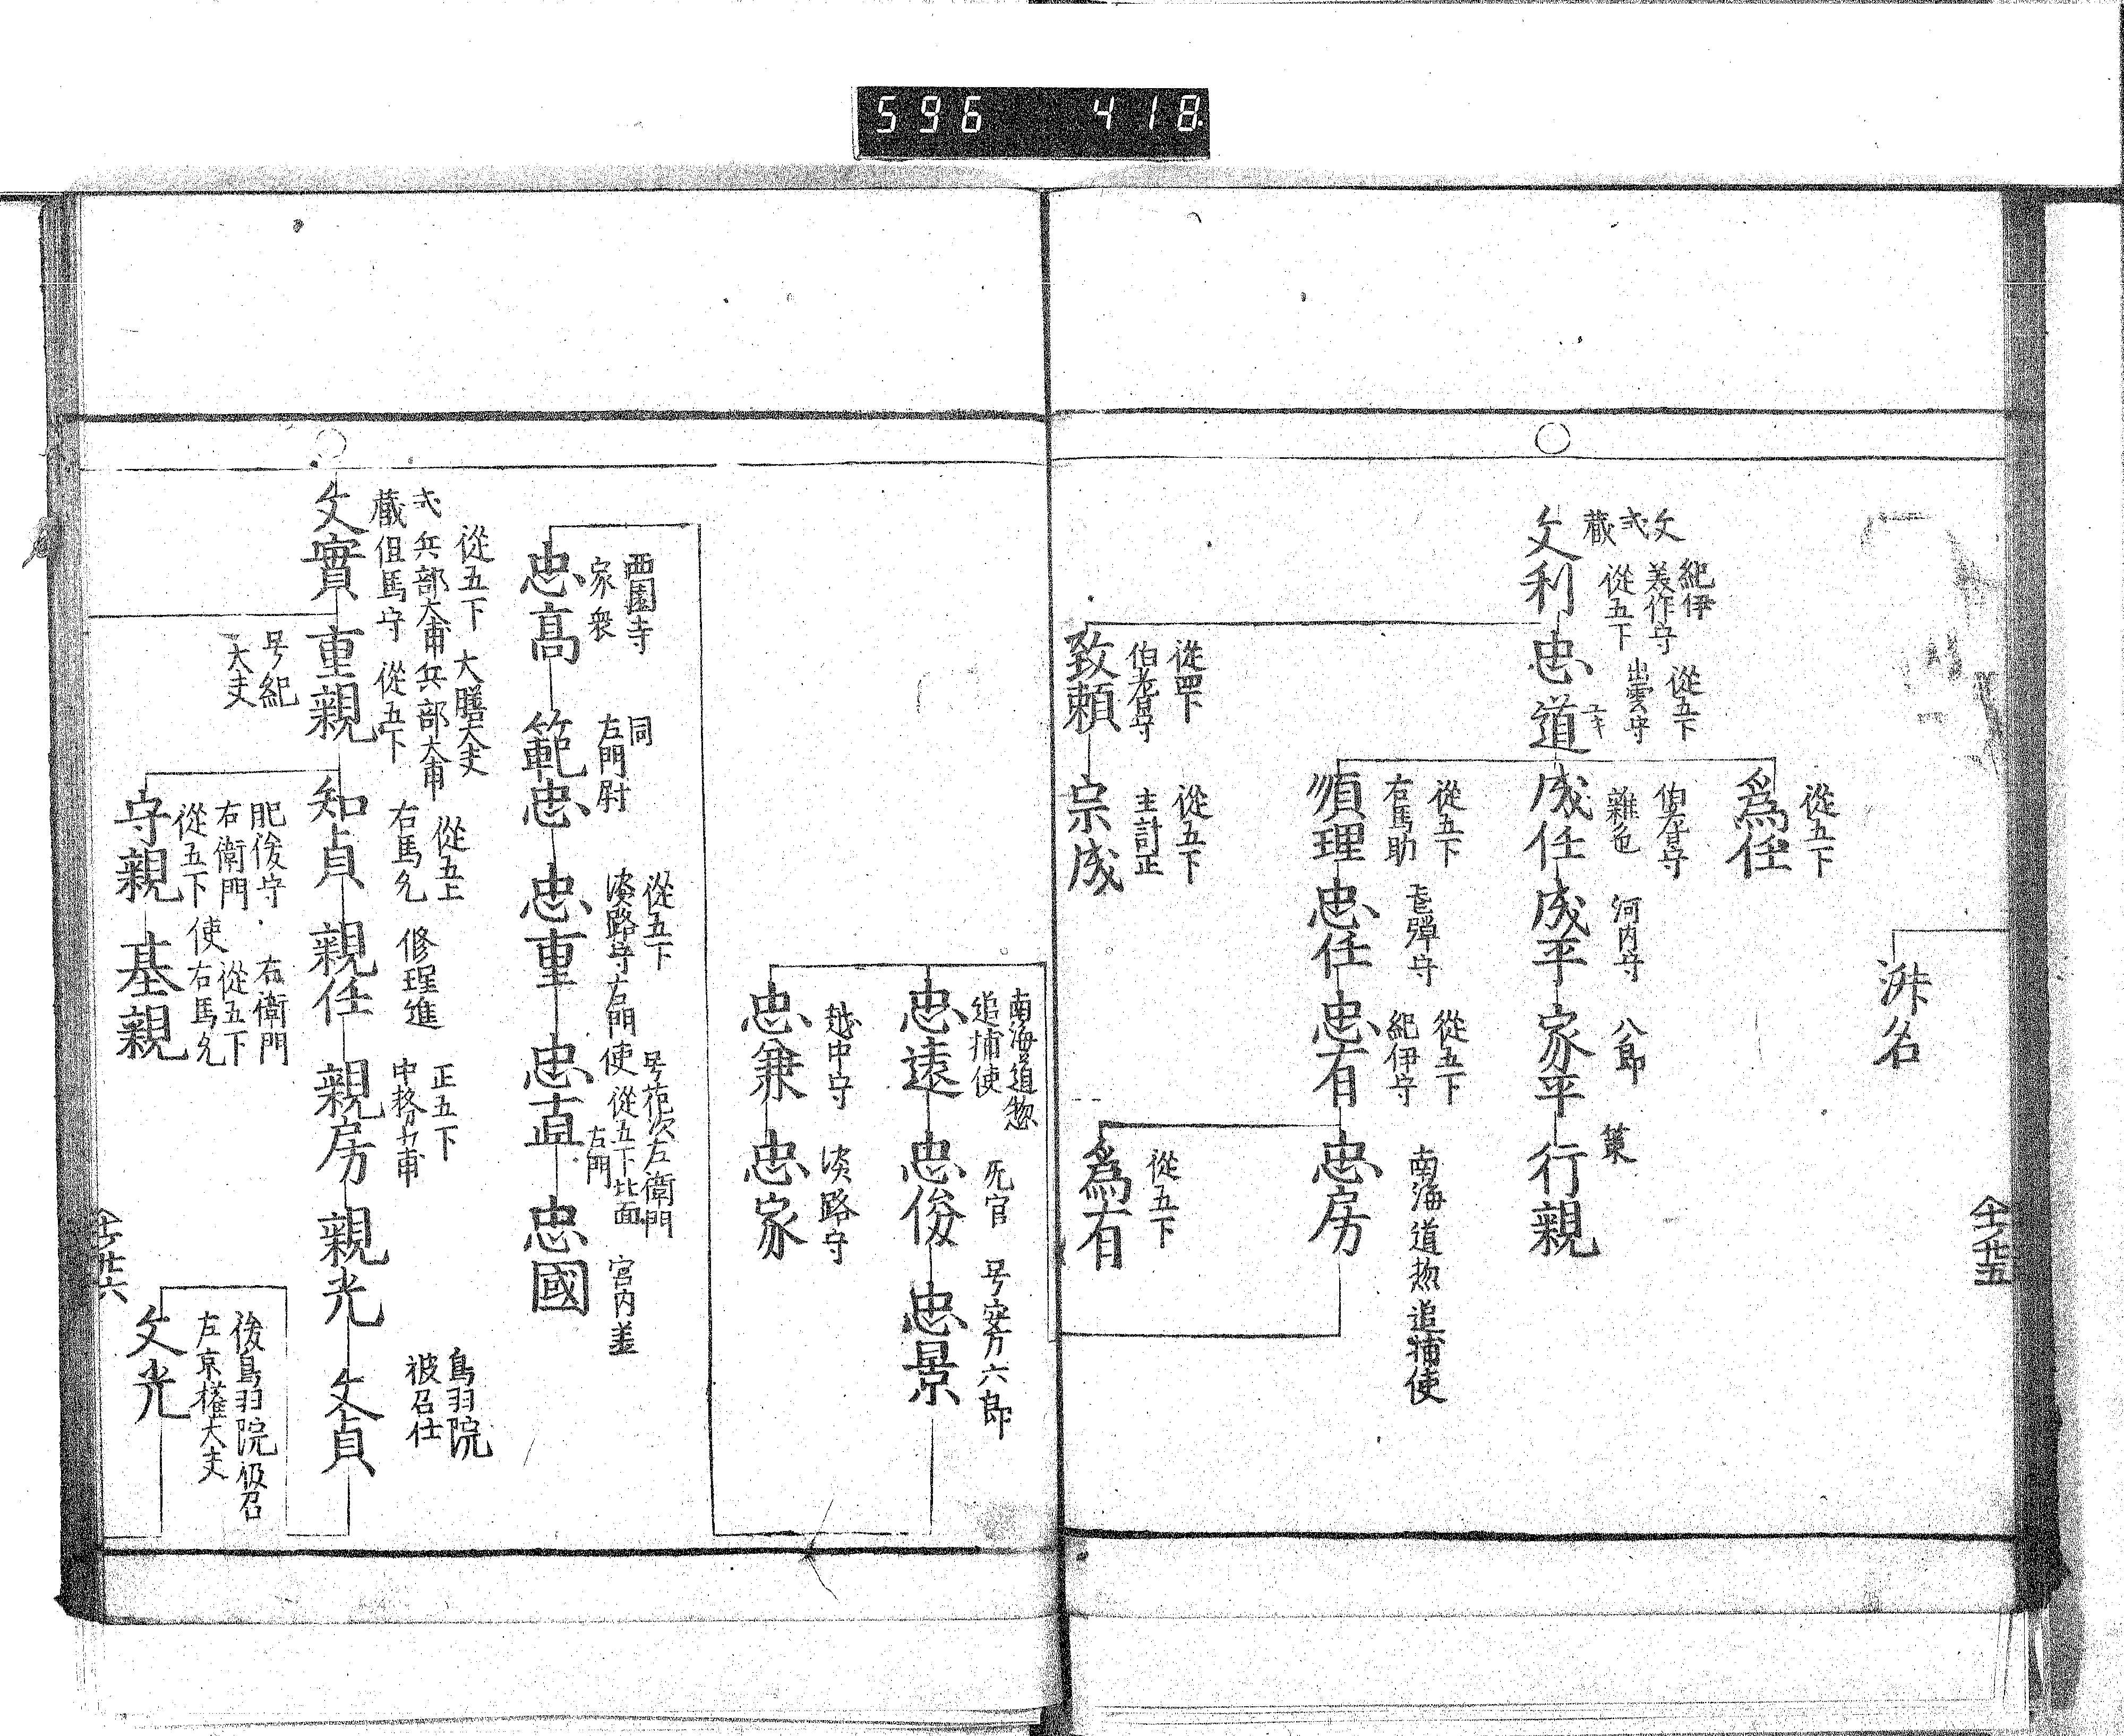 596 418
從五下
爲任
文
弐
蔵
紀伊
美作守
從五下
文利
從五下
出雲守
忠道
伯耆守
雜色
成任
河内守
成平
八郎
家平
行親
從五下
右馬助
順理
忠任
從五下
紀伊守
忠有
南海道惣追捕使
忠房
從五下
爲有
從四下
伯耆守
致頼
從五下
主計正
宗成
南海道惣
追捕使
忠遠
忠俊
忠景
越中守
忠兼
淡路守
忠家
西園寺
家衆
忠高
同
左門尉
範忠
從五下
淡路守
忠重
左衛門
從五下北面
左門
忠直
宮内
忠國
從五下 大膳大夫
弐 兵部大甫 兵部大甫
蔵 但馬守 從五下
文實
重親
從五上
右馬允
知貞
修理進
親任
正五下
親房
親光
鳥羽院
被召仕
文貞
号紀
大夫
肥後守
右衛門
從五下使
守親
右衛門
從五下
右馬允
基親
後鳥羽院
左京權大夫
文光